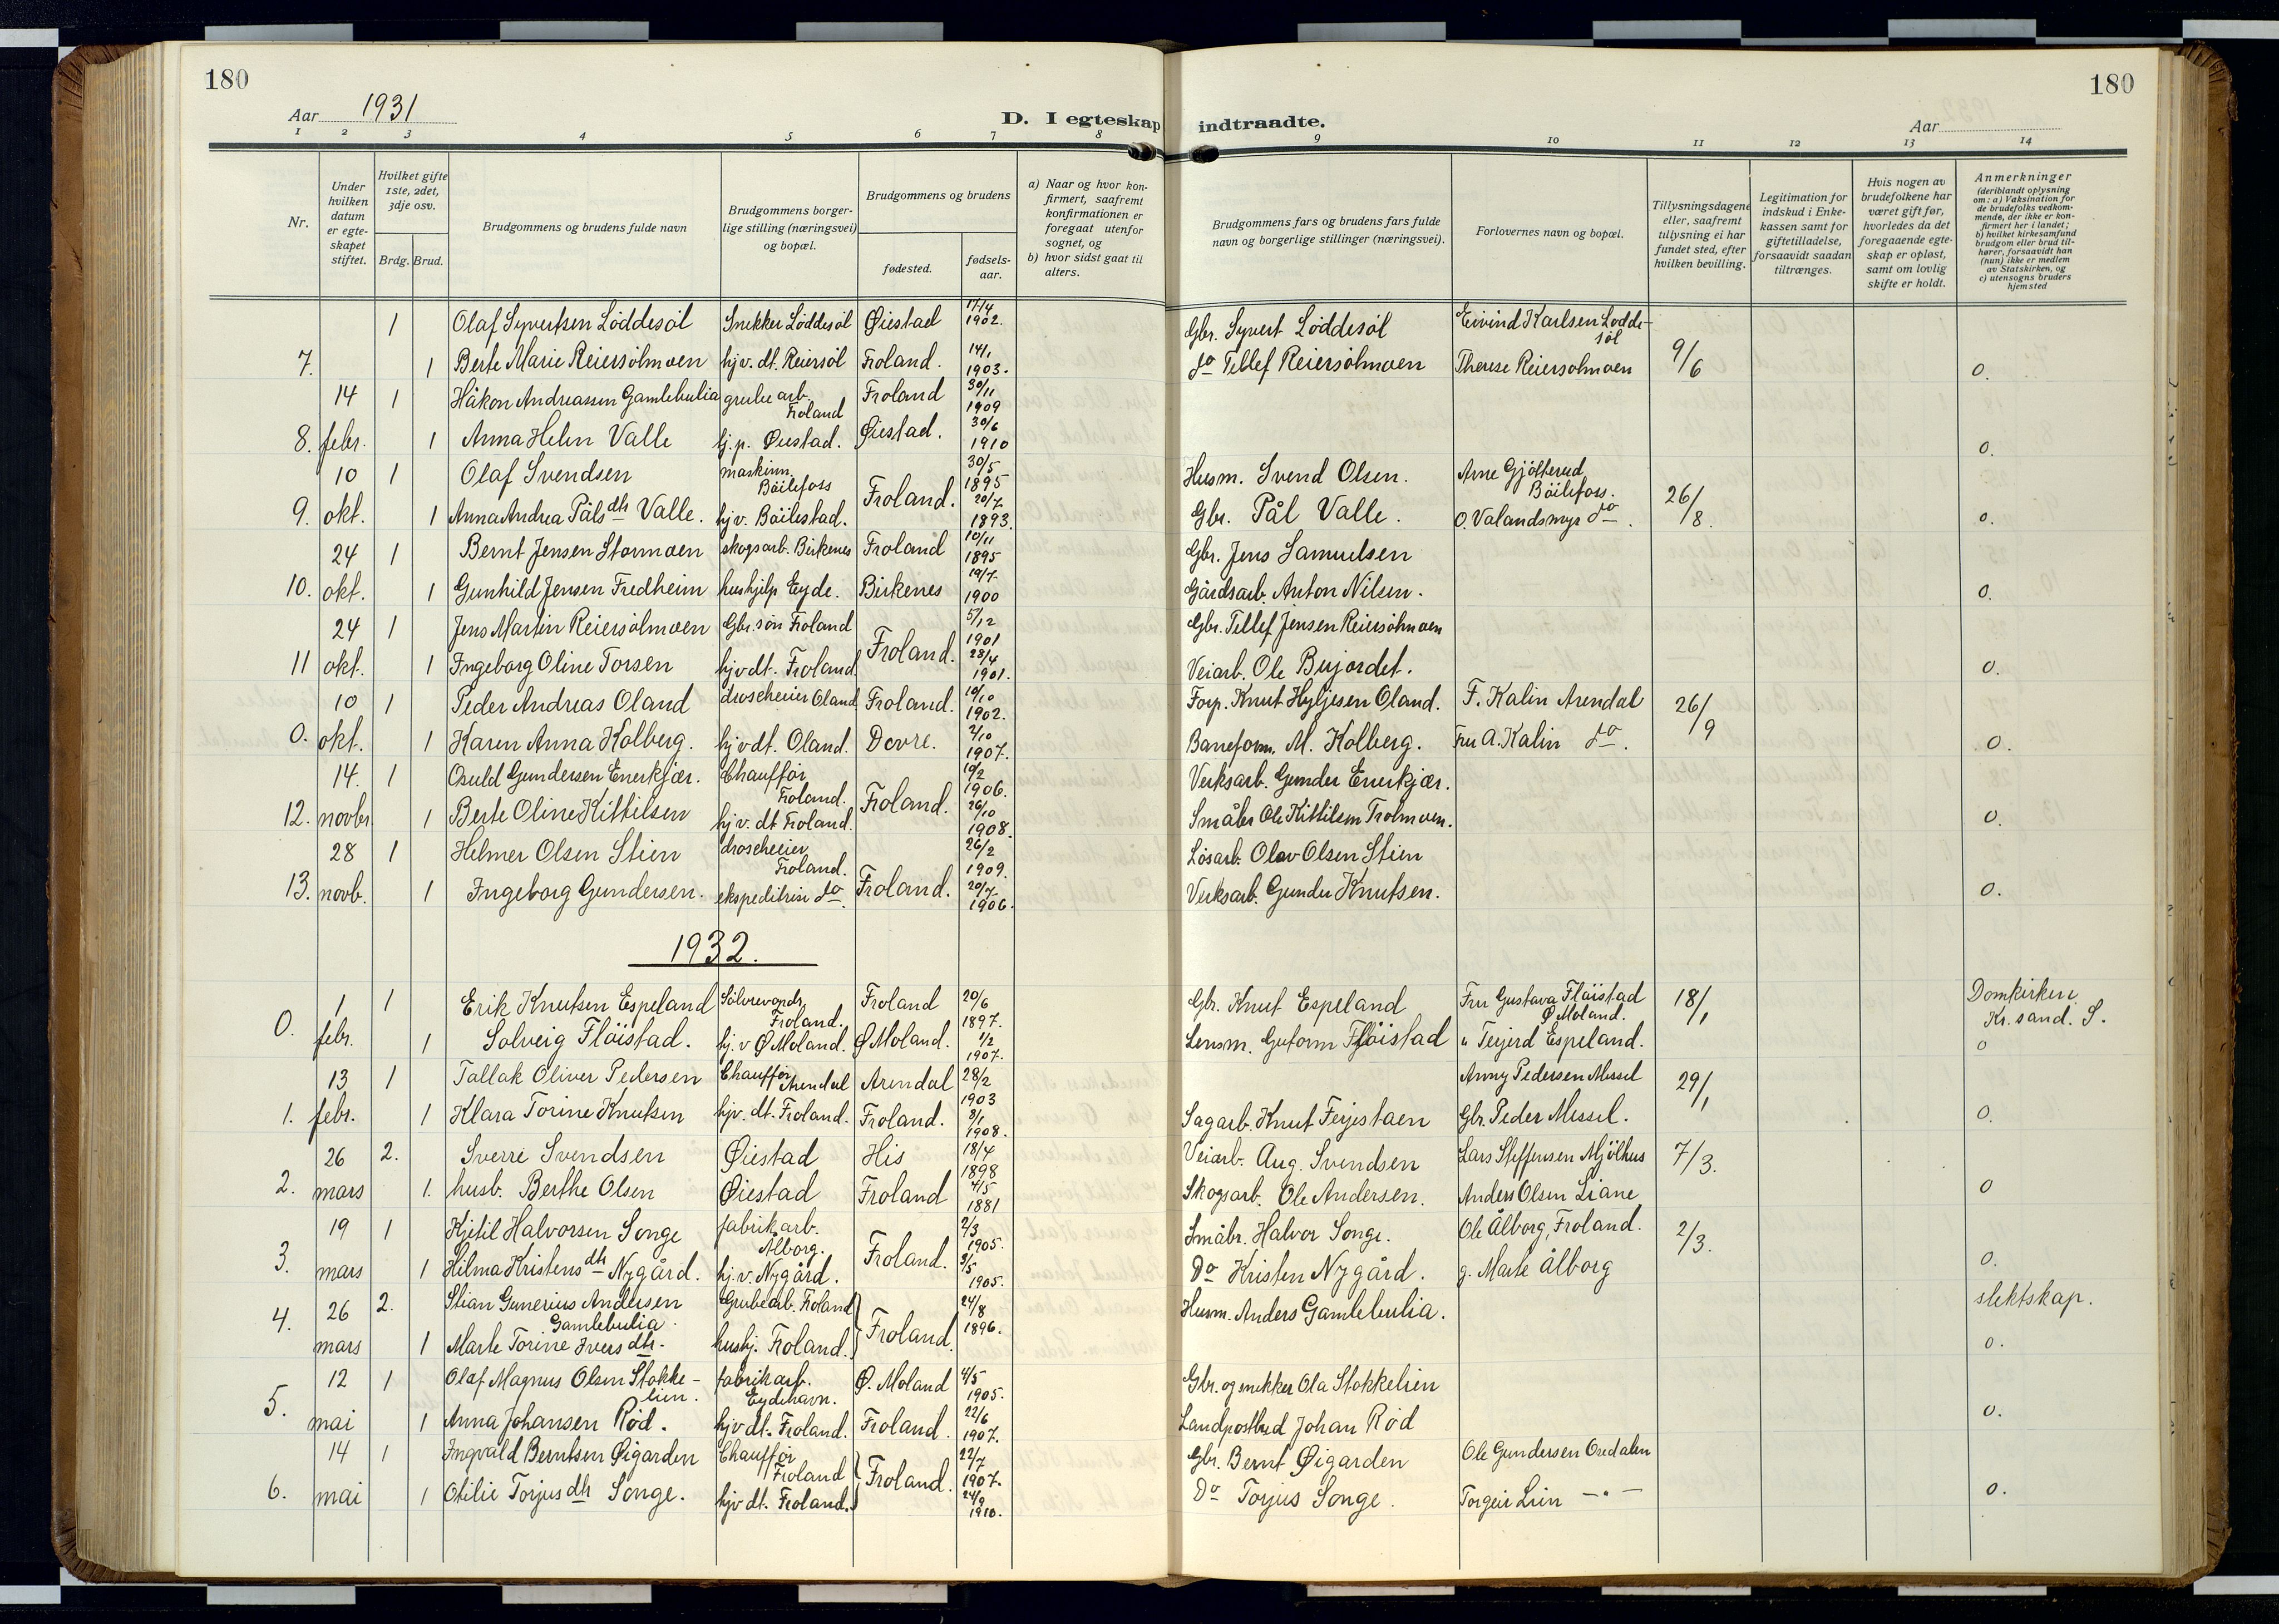 180
180
Aar 1931
D. I egteskap indtraadte.
Aar
1 2 3 4 5 6 7 8 9 10 11 12 13 14
Nr.
Under hvilken datum er egteskapet stiftet.
Hvilket gifte 1ste, 2det, 3dje osv.
Brdg. Brud.
Brudgommens og brudens fulde navn
Brudgommens borgerlige stilling (næringsvei) og bopæl.
Brudgommens og brudens
fødested.
fødselsaar.
a) Naar og hvor konfirmert, saafremt konfirmationen er foregaat utenfor sognet, og
b) hvor sidst gaat til alters.
Brudgommens fars og brudens fars fulde navn og borgerlige stillinger (næringsvei).
Forlovernes navn og bopæl.
Tillysningsdagene eller, saafremt tillysning ei har fundet sted, efter hvilken bevilling.
Legitimation for indskud i Enkekassen samt for giftetilladelse, forsaavidt saadan tiltrænges.
Hvis nogen av brudefolkene har været gift før, hvorledes da det foregaaende egteskap er opløst, samt om lovlig skifte er holdt.
Anmerkninger (deriblandt oplysning om: a) Vaksination for de brudefolks vedkommende, der ikke er konfirmert her i landet; b) hvilket kirkesamfund brudgom eller brud tilhører, forsaavidt han (hun) ikke er medlem av Statskirken, og c) utensogns bruders hjemsted
1 Olaf Syvertsen Löddesöl Snekker Löddesöl Øiestad 17/4 1902. Gbr. Syvert Löddesöl Eivind Karlsen Loddesöl
7. 1 Berte Marie Reiersölmoen hjv. dt. Reiersöl Froland. 14/1 1903. do Tellef Reiersölmoen Therese Reiersolmoen 9/6 0.
14 1 Håkon Andreassen Gamlebulia grube arb. Froland Froland 30/11 1909
8. febr. 1 Anna Helen Valle hj. p. Øiestad. Øiestad. 30/6 1910 0.
10 1 Olaf Svendsen maskinm. Böilefoss Froland. 30/5 1895 Husm. Svend Olsen. Arne Gjölterud Böilefoss.
9. okt. 1 Anna Andrea Pålsdtr Valle. hjv. Böilestad. 20/7 1893. Gbr. Pål Valle. O. Valandsmyr do. 26/8. 0.
24 1 Bernt Jensen Stormoen skogsarb. Birkenes Froland 10/11 1895 Gbr. Jens Samuelsen
10. okt. 1 Gunhild Jensen Fredheim hushjelp Eyde. Birkenes 19/7 1900 Gårdsarb. Anton Nilsen. 0.
24 1 Jens Martin Reiersölmoen Gbr. sön Froland Froland. 5/12 1901 Gbr. Tellef Jensen Reiersölmoen
11 okt. 1 Ingeborg Oline Torsen hjv dt. Froland. 28/4 1901. Veiarb. Ole Bujordet. 0.
10 1 Peder Andreas Oland droscheeier Oland Froland. 10/10 1902. Forp. Knut Hyljesen Oland. F. Kalin Arendal
0. okt. 1 Karen Anna Kolberg. hjv dt. Oland. Dovre. 2/10 1907. Baneform. M. Kolberg. Fru A. Kalin do. 26/9 0.
14. 1 Osuld Gundersen Enerkjær. Chaufför Froland. Froland. 10/2 1906. Verksarb. Gunder Enerkjær.
12. novbr 1 Berte Oline Kittilsen hjv. dt Froland. 26/10 1908. Småbr Ole Kittilsen Trolmoen. 0.
28 1 Helmer Olsen Stien droscheeier Froland. Froland. 26/2 1909. Lösarb. Olav Olsen Stien
13. novb. 1 Ingeborg Gundersen. ekspeditrise do. 20/7 1906. Verksarb. Gunder Knutsen. 0.
1932.
1 1 Erik Knutsen Espeland Sölvrevopdr. Froland. Froland 20/6 1897. Gbr. Knut Espeland Fru Gustava Flöistad Ø Moland. 18/1 Domkirken Kr. sand. S.
0. febr. 1 Solveig Flöistad. hj. v Ø Moland. Ø Moland. 1/2 1907. Lensm. Guttorm Flöistad " Terjerd Espeland. 0
13 1 Tallak Oliver Pedersen Chaufför Arendal Arendal 28/2 1903 Anny Pedersen Messel 29/1
1. febr. 1 Klara Torine Knutsen hjv. dt. Froland. Froland. 8/1 1908. Sagarb. Knut Ferjestaen Gbr. Peder Messel. 0.
26 2. Sverre Svendsen Øiestad His 18/4 1898 Veiarb. Aug. Svendsen Lars Steffensen Mjölhus 7/3.
2. mars 1. husb. Berthe Olsen Øiestad Froland 4/5 1881 Skogsarb. Ole Andersen. Anders Olsen Liane 0
19 1 Kjetil Halvorsen Songe fabrikarb. Ålborg. Froland. 2/3 1905. Småbr. Halvor Songe. Ole Ålborg, Froland. 2/3.
3. mars 1 Hilma Kristensdtr Nygård. hj. v. Nygård. 3/5 1905. Do Kristen Nygård. g. Marte Ålborg 0.
4. 26 2. Stian Gunerius Andersen Gamlebulia. Grubearb. Froland Froland. 24/8 1896. Husm. Anders Gamlebulia. slektskap.
mars 1 Marte Torine Iversdtr. hushj. Froland. 0.
12 1 Olaf Magnus Olsen Stokkelien. fabrikarb. Eydehavn. Ø. Moland 4/5 1905. Gbr. og snekker Ola Stokkelien
5. mai 1 Anna Johansen Röd. hjv dt. Froland. Froland. 22/6 1907. Landpostbud Johan Röd 0.
14 1 Ingvald Berntsen Øigarden Chaufför Froland Froland. 22/7 1907. Gbr. Bernt Øigarden Ole Gundersen Osedalen
6. mai 1 Otilie Torjusdtr Songe. hjv dt. Froland. 24/9 1910. Do Torjus Songe. Torgeir Lien — " — 0.